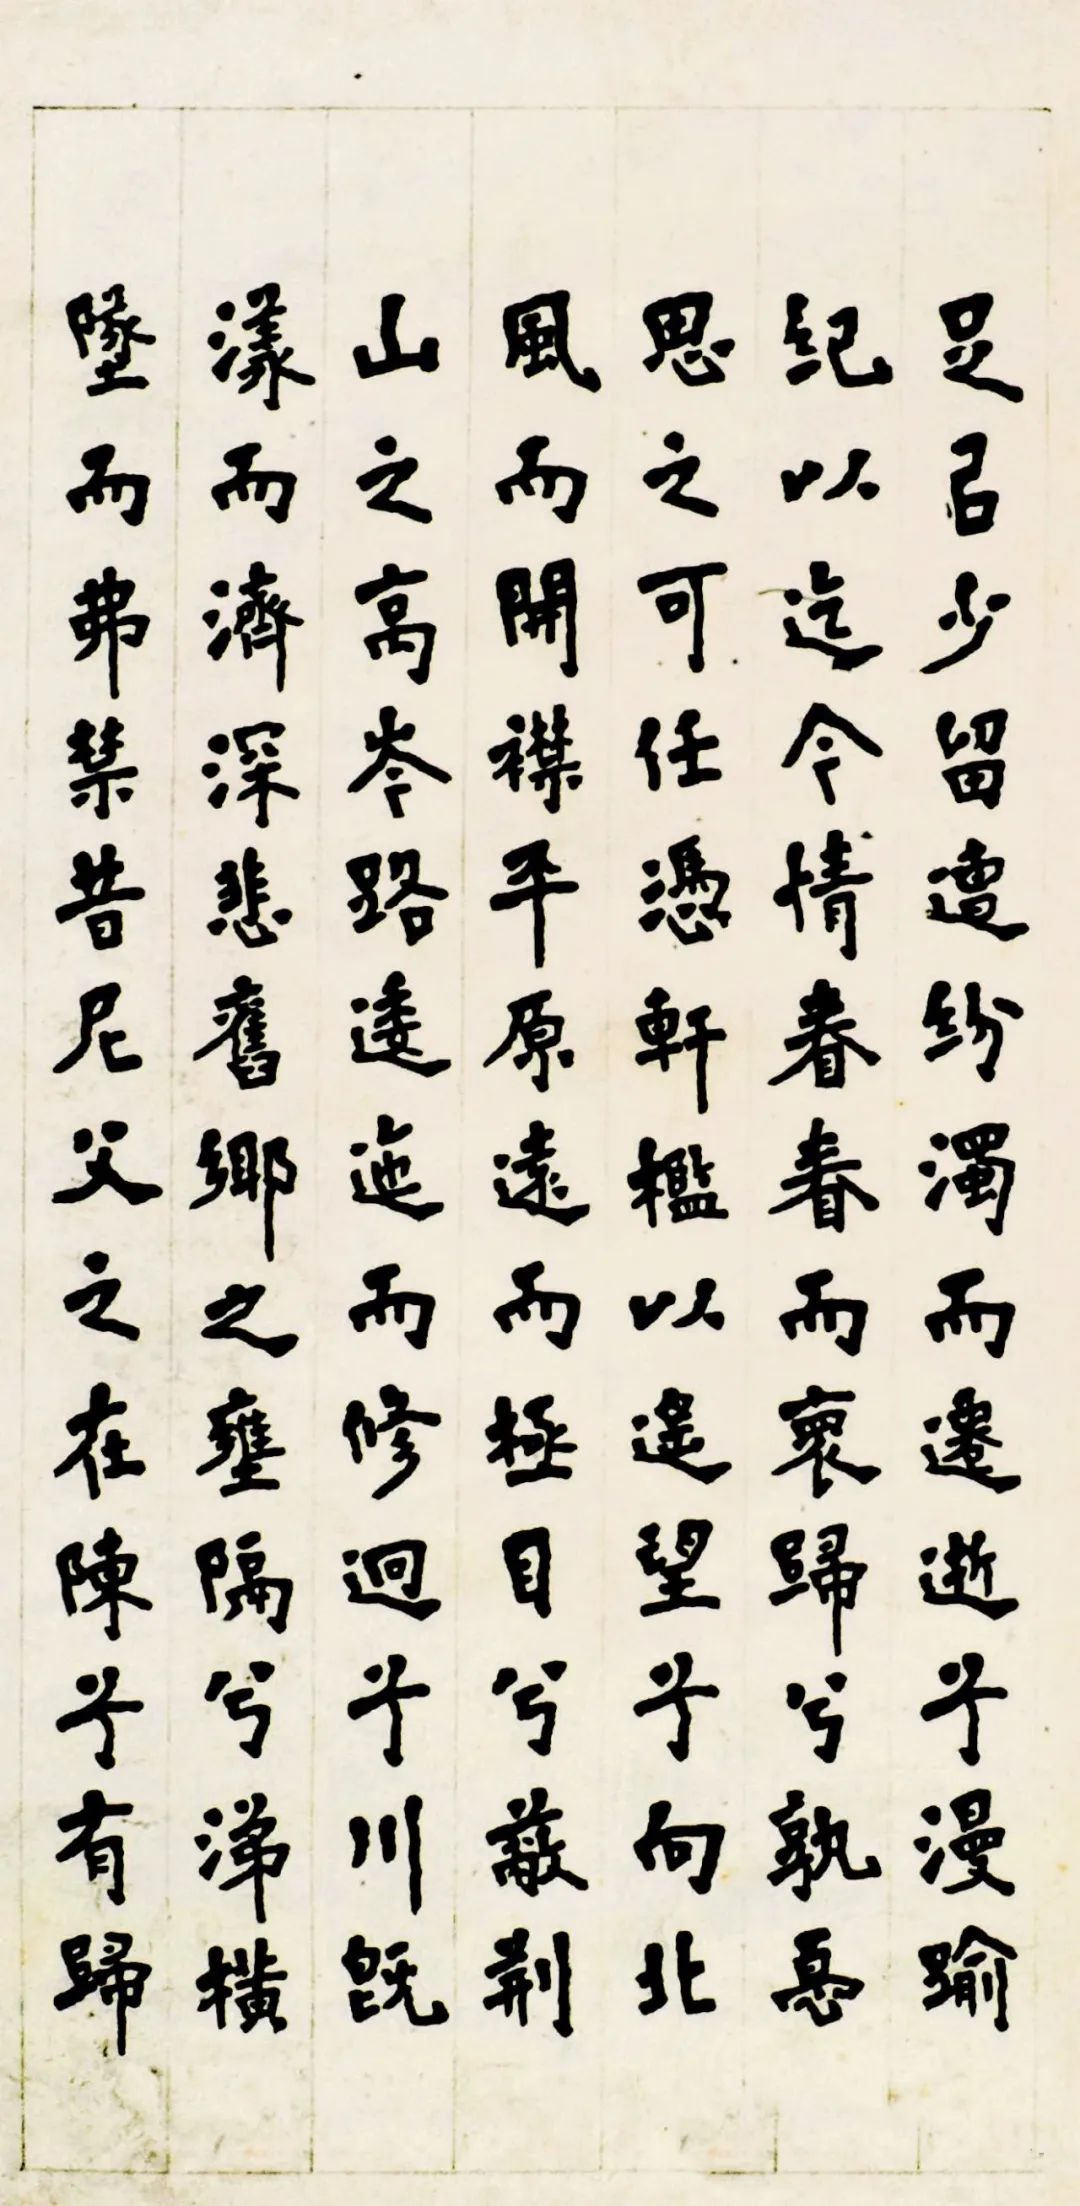 足㠯少留遭紛濁而遷逝兮漫踰
紀以迄今情眷眷而褱歸兮孰憂
思之可任憑軒檻以遥望兮向北
風而開襟平原遠而極目兮蔽荆
山之高岑路逶迤而修迥兮川既
漾而濟深悲舊鄉之壅隔兮涕橫
墜而弗禁昔尼父之在陳兮有歸